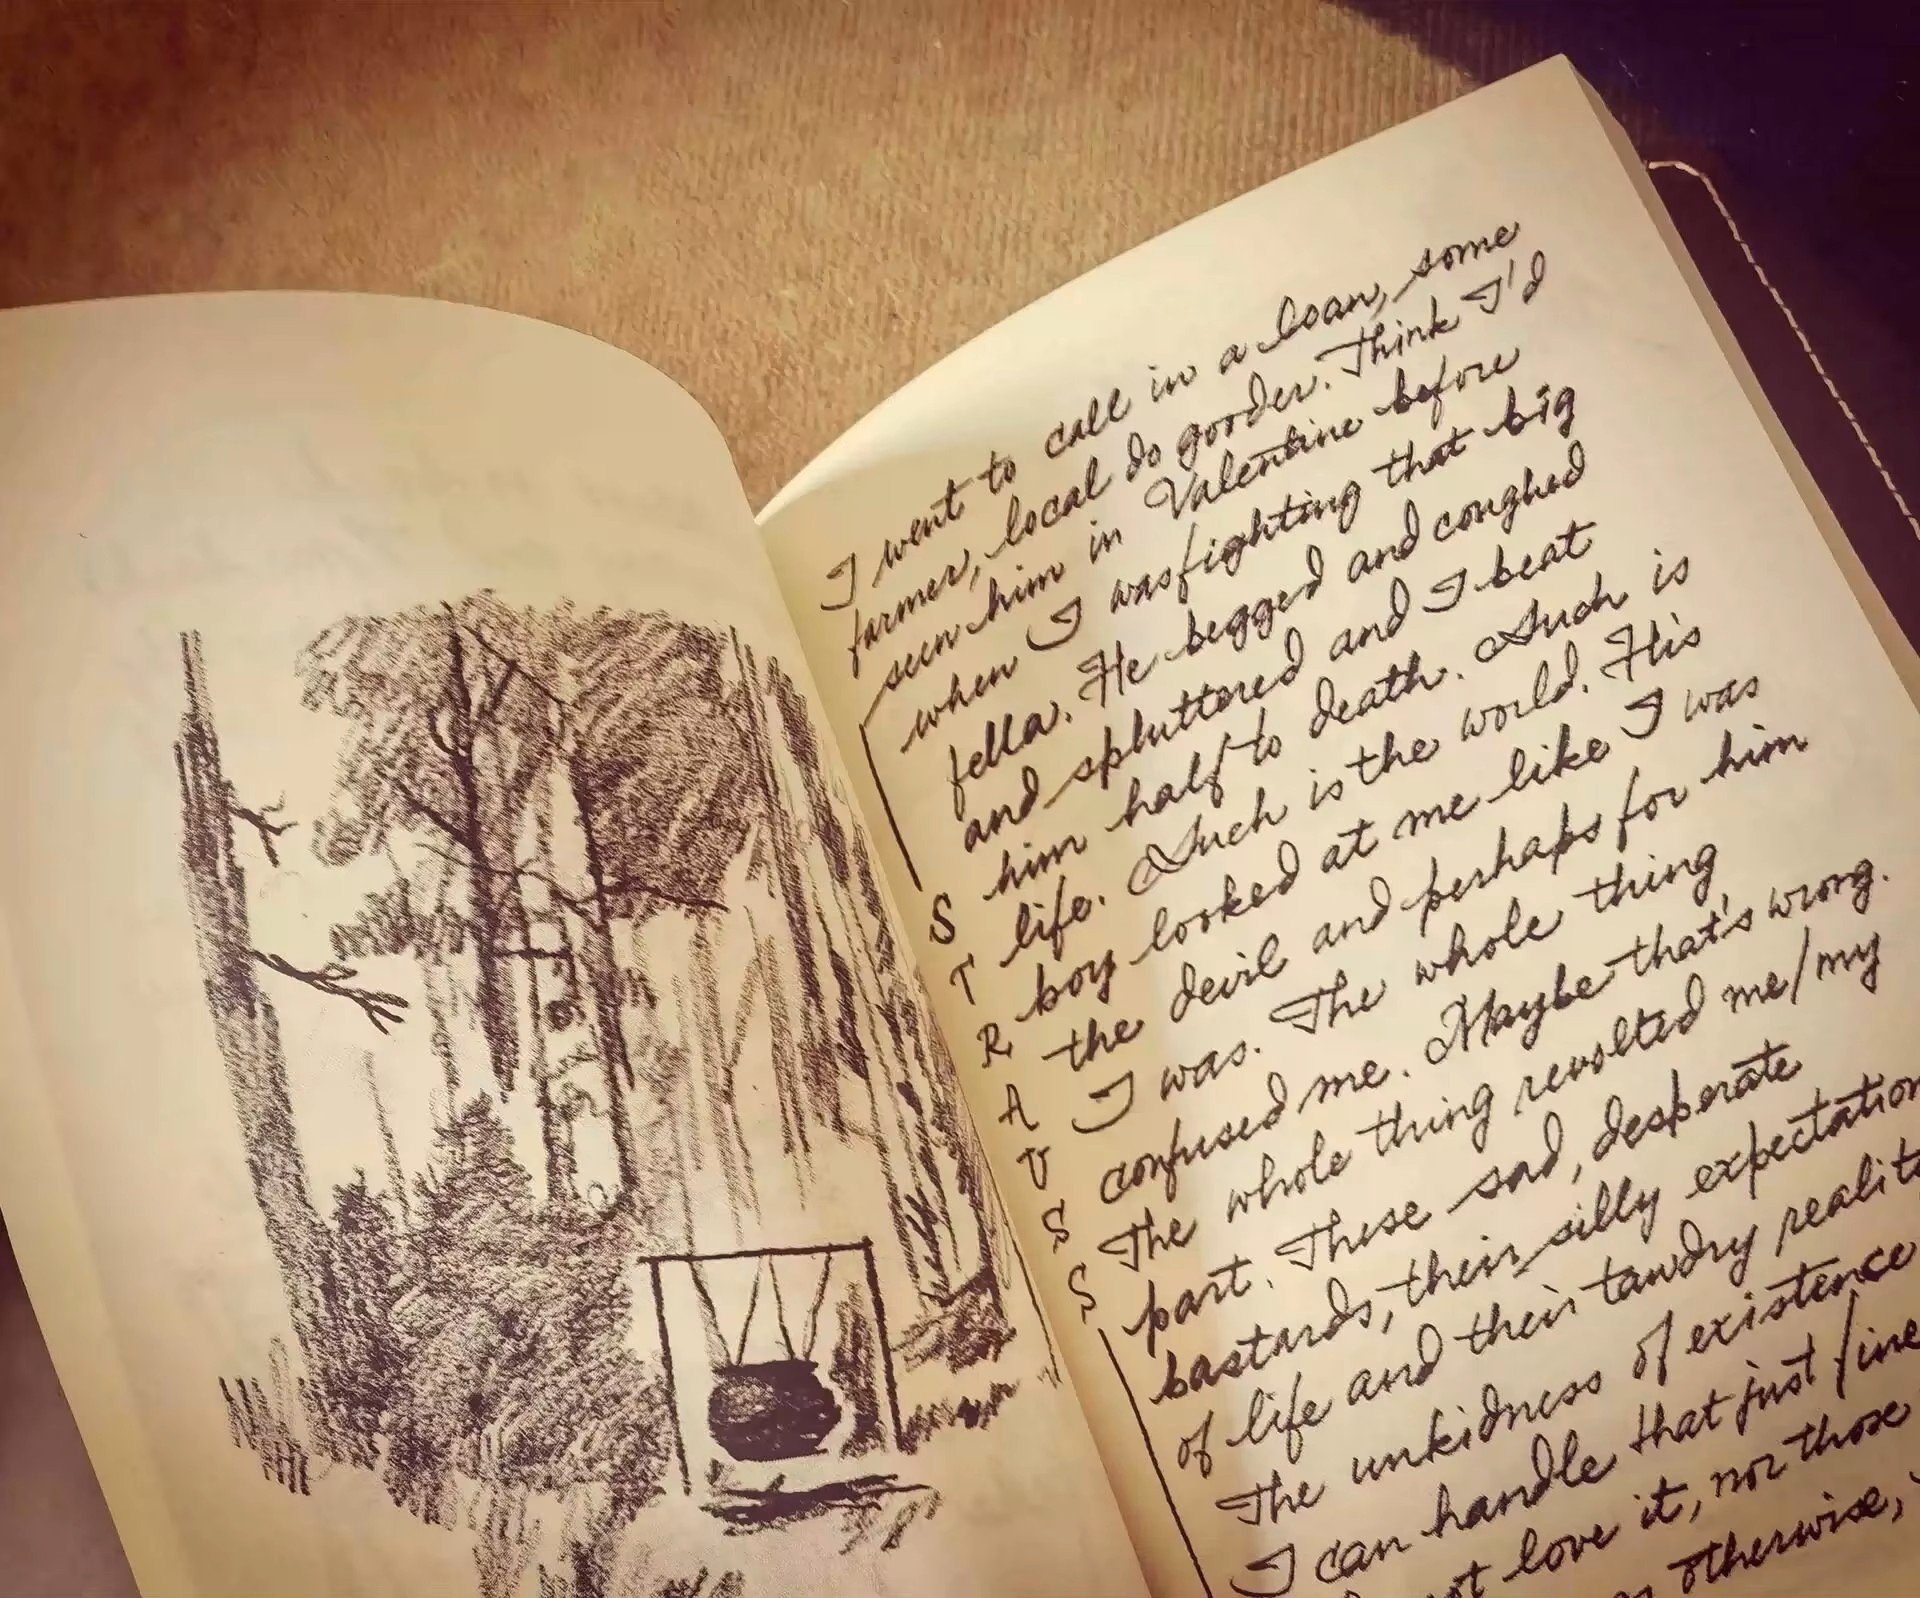 I went to call in a loan, some
farmer, local do gooder. Think I'd
seen him in Valentine before
when I was fighting that big
fella. He begged and coughed
and spluttered and I beat
him half to death. Such is
life. Such is the world. His
boy looked at me like I was
the devil and perhaps for him
I was. The whole thing
confused me. Maybe that's wrong.
The whole thing revolted me/my
part. These sad, desperate
bastards, their silly expectation
of life and their tawdry realit
The unkidness of existence
I can handle that just fine
not love it, nor those
otherwise,
STRAUSS